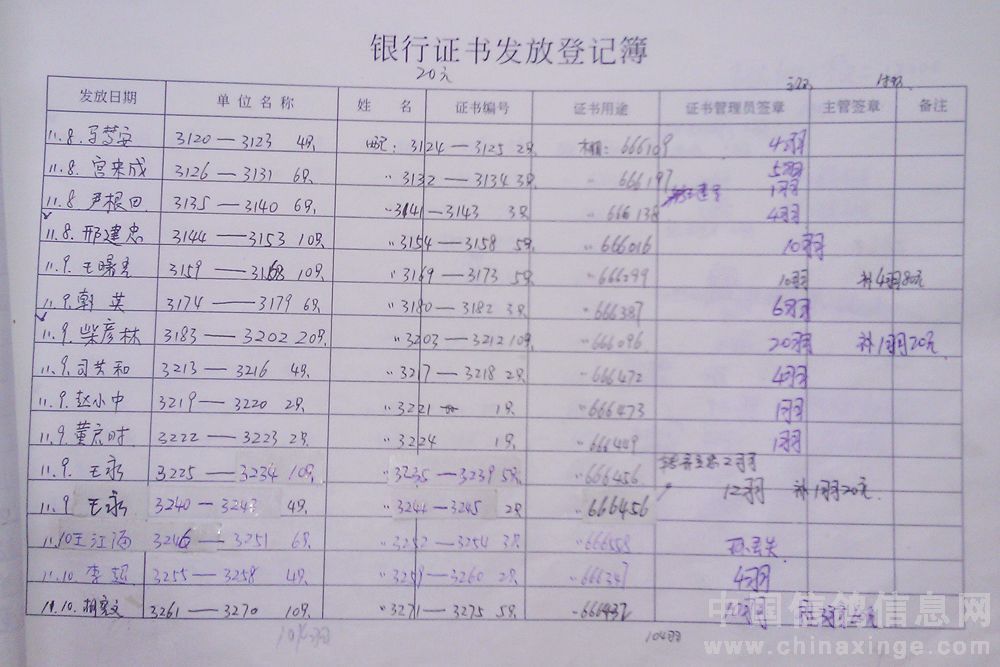 银行证书发放登记簿
20元
发放日期 单位名称 姓名 证书编号 证书用途 证书管理员签章 主管签章 备注
11.8. 马 安 3120—3123 4只 3124—3125 2只 666109 4羽
11.8. 宫来成 3126—3131 6只 〃3132—3134 3只 〃 666197 5羽
1羽
11.8 尹根田 3135—3140 6只 〃3141—3143 3只 〃 666138 4羽
11.8. 邢建忠 3144—3153 10只 〃3154—3158 5只 〃666016 10羽
11.9. 王曙 3159—3168 10只 〃3169—3173 5只 〃666099 10羽 补4羽80元
11.9. 韩英 3174—3179 6只 〃3180—3182 3只 〃666387 6羽
11.9. 柴彦林 3183—3202 20只 〃3203—3212 10只 〃666096 20羽 补1羽20元
11.9. 司共和 3213—3216 4只 〃3217—3218 2只 〃666472 4羽
11.9. 赵小中 3219—3220 2只 〃3221 1只 〃666473 1羽
11.9. 董启时 3222—3223 2只 〃3224 1只 〃666449 1羽
11.9. 王永 3225—3234 10只 〃3235—3239 5只 〃666456
11.9 王永 3240—3243 4只 〃3244—3245 2只 〃666456 12羽 补1羽20元
11.10 王江海 3246—3251 6只 〃3252—3254 3只 〃666558
11.10. 李超 3255—3258 4只 〃3259—3260 2只 〃666347 4羽
11.10. 3261—3270 10只 〃3271—3275 5只 〃666432
104羽 104羽
中国信鸽信息网
www.chinaxinge.com